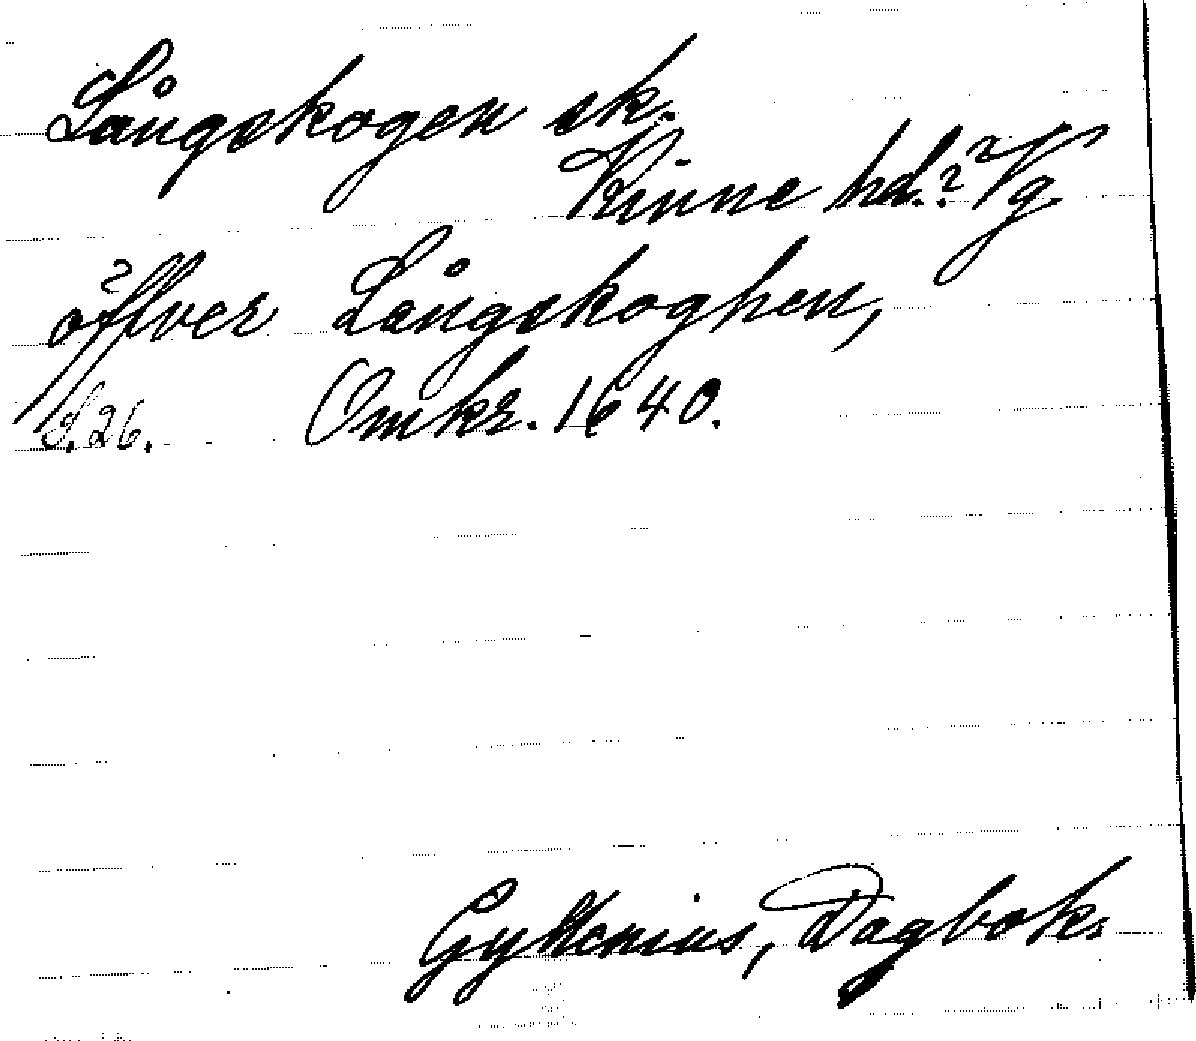 Långskogen sk.
Kinne hd.? Vg
öffver Långskoghen,
S. 26. Omkr. 1640.
Gyllenius, Dagbok.